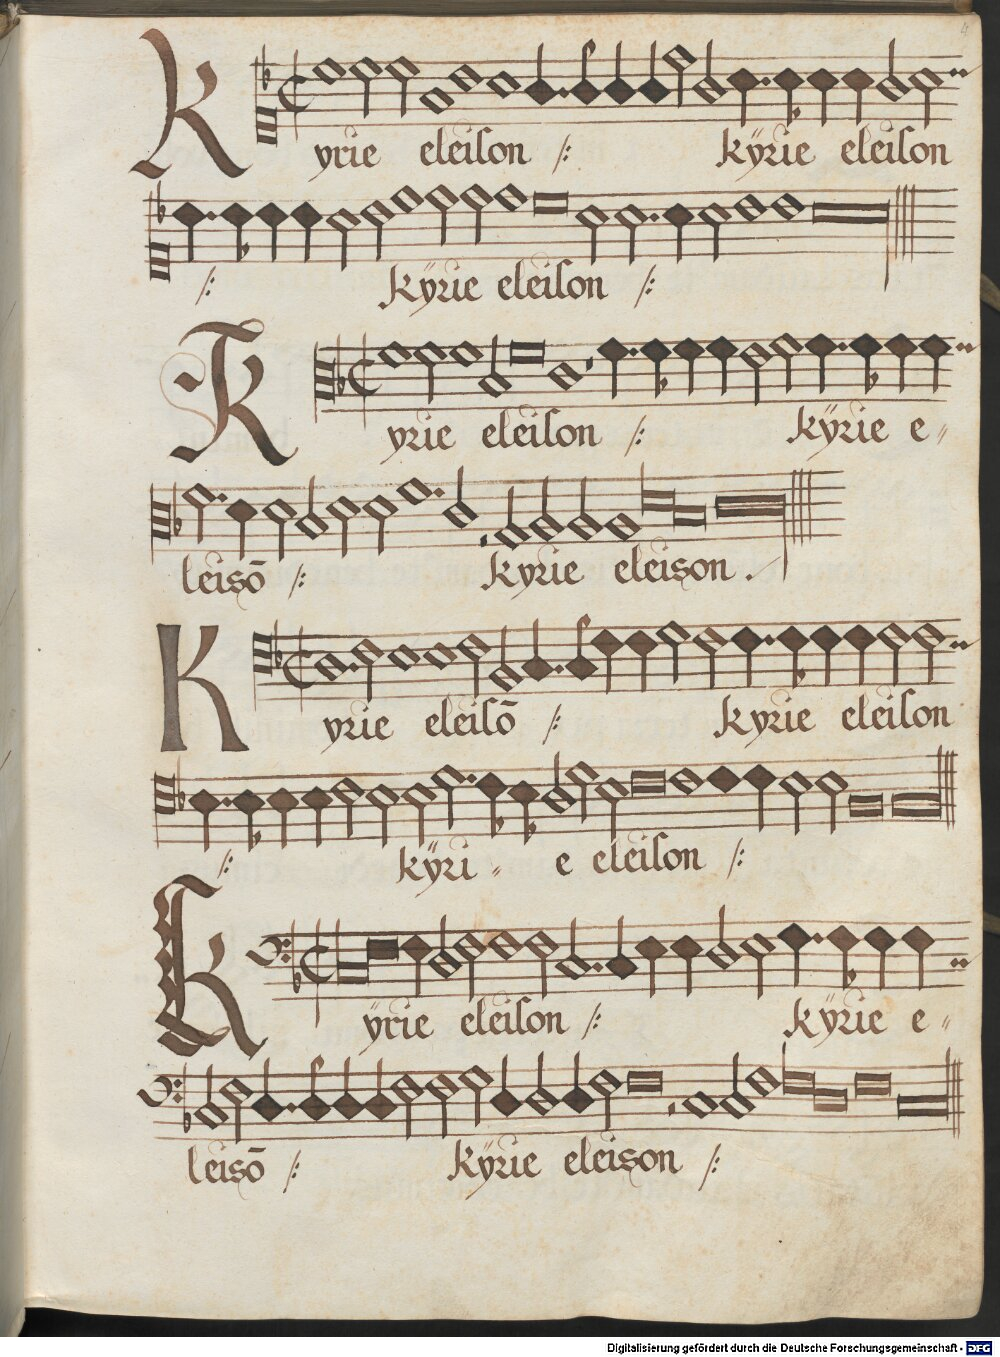 Kyrie eleison /: kÿrie eleison
/: kÿrie eleison /:
Kyrie eleison /: kÿrie e-
leisõ /: kyrie eleison /
Kyrie eleisõ /: kyrie eleison
/: kÿri - e eleison /:
Kÿrie eleison /: kÿrie e-
leisõ /: kÿrie eleison /:
Digitalisierung gefördert durch die Deutsche Forschungsgemeinschaft - DFG